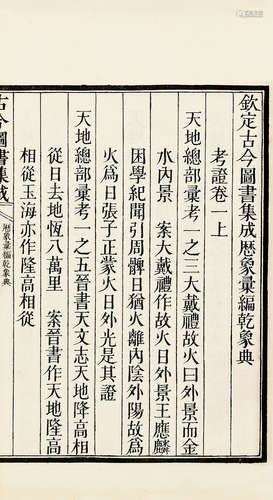 欽定古今圖書集成曆象彙編乾象典
考證卷一上
天地總部彙考一之三大戴禮故火曰外景而金
水內景　案大戴禮作故火日外景王應麟
困學紀聞引周髀日猶火離內陰外陽故爲
火爲日張子正蒙火日外光是其證
天地總部彙考一之五晉書天文志天地隆高相
從日去地恆八萬里　案晉書作天地隆高
相從玉海亦作隆高相從
古今圖書集成
曆象彙編乾象典